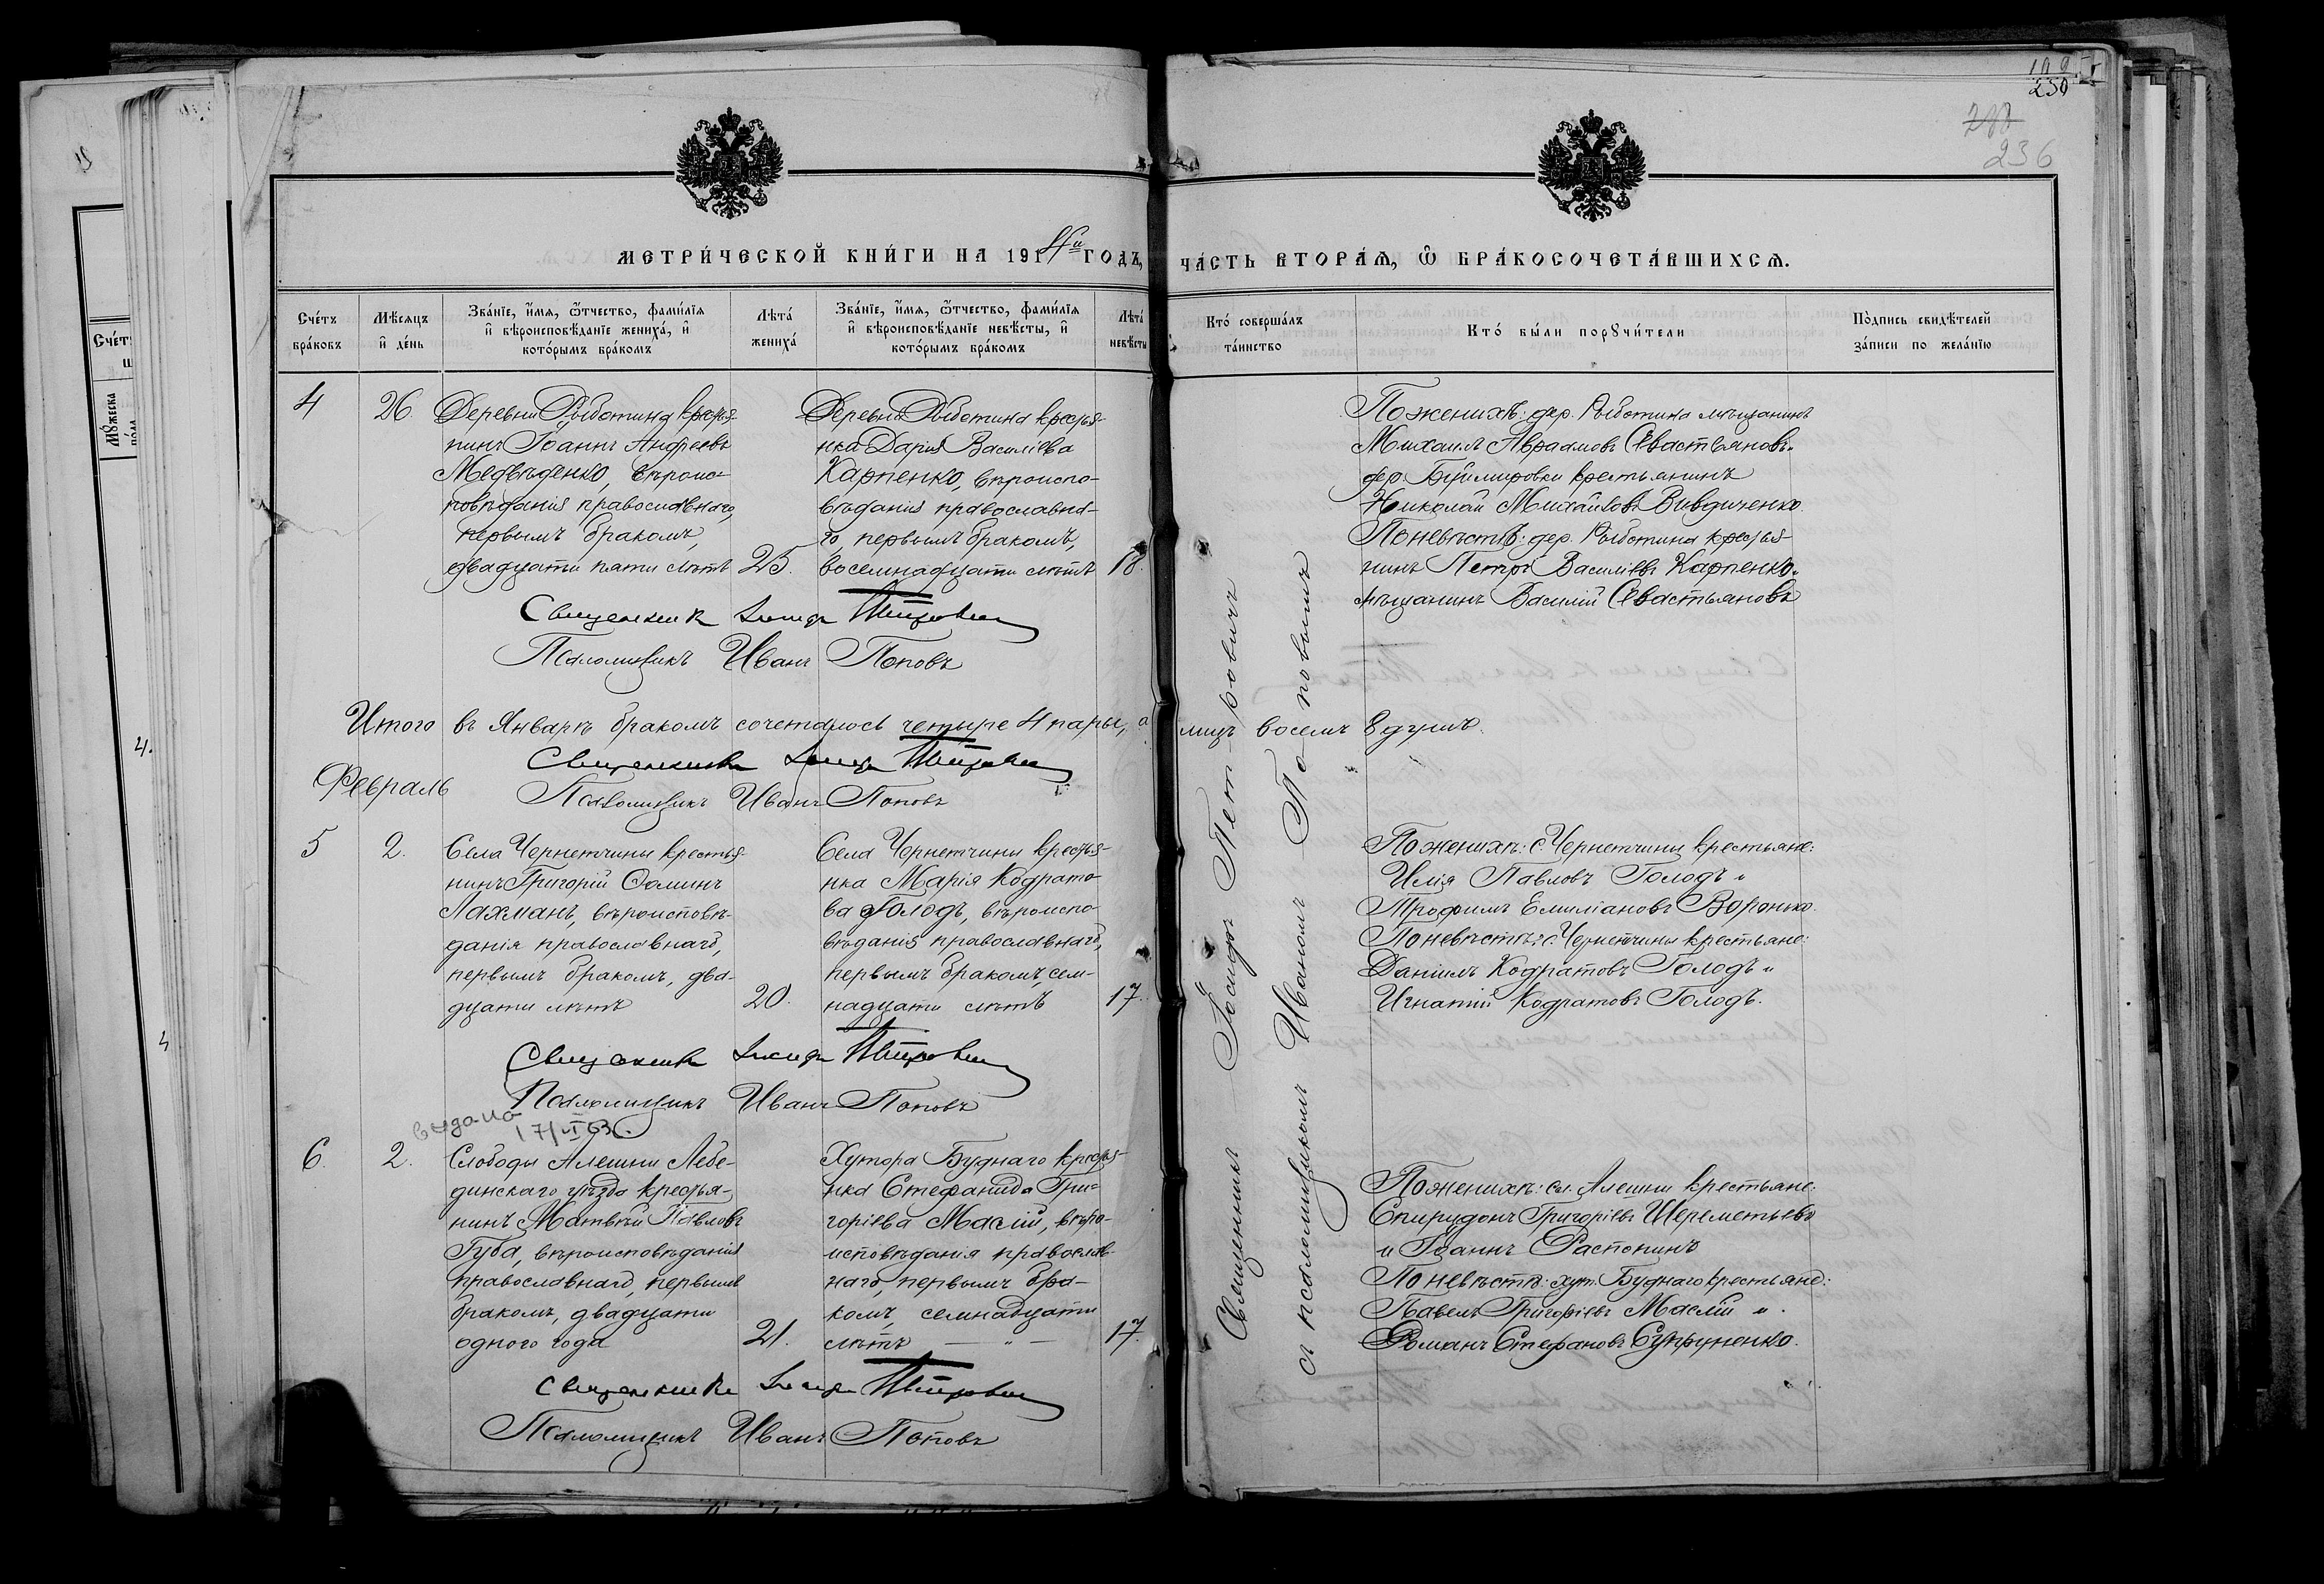 199
250
288
236
МЕТРИ́ЧЕСКОЙ КНИ́ГИ НА 1914й ГОДЪ,
ЧА́СТЬ ВТОРА́Ѧ, Ѿ БРА́КОСОЧЕТА́ВШИХСѦ.
Сче́тъ бра́ковъ
Мѣ́сѧцъ и҆ де́нь
Зва́нїе, и҆́мѧ, ѻ҆́тчество, фами́лїѧ
и҆ вѣроисповѣ́данїе жениха́, и҆
кото́рымъ бра́комъ
Лѣта́ жениха́
Зва́нїе, и҆́мѧ, ѻ҆́тчество, фами́лїѧ
и҆ вѣроисповѣ́данїе невѣ́сты, и҆
кото́рымъ бра́комъ
Лѣта́ невѣ́сты
Кто́ соверша́лъ та́инство
Кто́ бы́ли порꙋчи́тели
По́дпись свидѣ́телей за́писи по жела́нїю
4
26
Деревни Рыботина крестья-
нинъ Іоаннъ Андреевъ
Медвѣденко, вѣроис-
повѣданія православнаго,
первымъ бракомъ,
двадцати пяти лѣтъ
25.
Деревни Рыботина крестья-
нка Дарія Василіева
Карпенко, вѣроиспо-
вѣданія православна-
го, первымъ бракомъ,
восемнадцати лѣтъ
18.
По женихѣ: дер. Рыботина мѣщанинъ
Михаилъ Авраамовъ Севастьяновъ.
дер. Буймировки крестьянинъ
Николай Михайловъ Вивдиченко
По невѣстѣ: дер. Рыботина крестья-
нинъ Петръ Василіевъ Карпенко.
мѣщанинъ Василій Севастьяновъ
Священникъ Іосифъ Петровичъ
Псаломщикъ Иванъ Поповъ
Итого въ Январѣ бракомъ сочеталось четыре 4 пары, а лицъ восемь 8 душъ.
Священникъ Іосифъ Петровичъ
Псаломщикъ Иванъ Поповъ
Февраль
5
2.
Села Чернетчины крестья-
нинъ Григорій Ѳоминъ
Лахманъ, вѣроисповѣ-
данія православнаго,
первымъ бракомъ, два-
дцати лѣтъ
20.
Села Чернетчины крестья-
нка Марія Кодрато-
ва Голодъ, вѣроиспо-
вѣданія православнаго,
первымъ бракомъ, сем-
надцати лѣтъ
17.
По женихѣ: с. Чернетчины крестьяне:
Илія Павловъ Голодъ и
Трофимъ Емиліановъ Воронько.
По невѣстѣ: с. Чернетчины крестьяне:
Даніилъ Кодратовъ Голодъ и
Игнатій Кодратовъ Голодъ.
Священникъ Іосифъ Петровичъ
Псаломщикъ Иванъ Поповъ
выдано
17/VI 63
6.
2.
Слободы Алешни Лебе-
динскаго уѣзда крестья-
нинъ Матвѣй Павловъ
Губа, вѣроисповѣданія
православнаго, первымъ
бракомъ, двадцати
одного года
21.
Хутора Буднаго крестья-
нка Стефанида Гри-
горіева Маслій, вѣро-
исповѣданія православ-
наго, первымъ бра-
комъ, семнадцати
лѣтъ — „ —
17
По женихѣ: сл. Алешни крестьяне:
Спиридонъ Григоріевъ Шереметьевъ
и Іоаннъ Распопинъ
По невѣстѣ: хут. Буднаго крестьяне:
Павелъ Григоріевъ Маслій и
Романъ Стефановъ Супруненко.
Священникъ Іосифъ Петровичъ
Псаломщикъ Иванъ Поповъ
Священникъ Іосифъ Петровичъ
съ псаломщикомъ Иваномъ Поповымъ
Сче́тъ
Мꙋ́жеска по́ла
4.